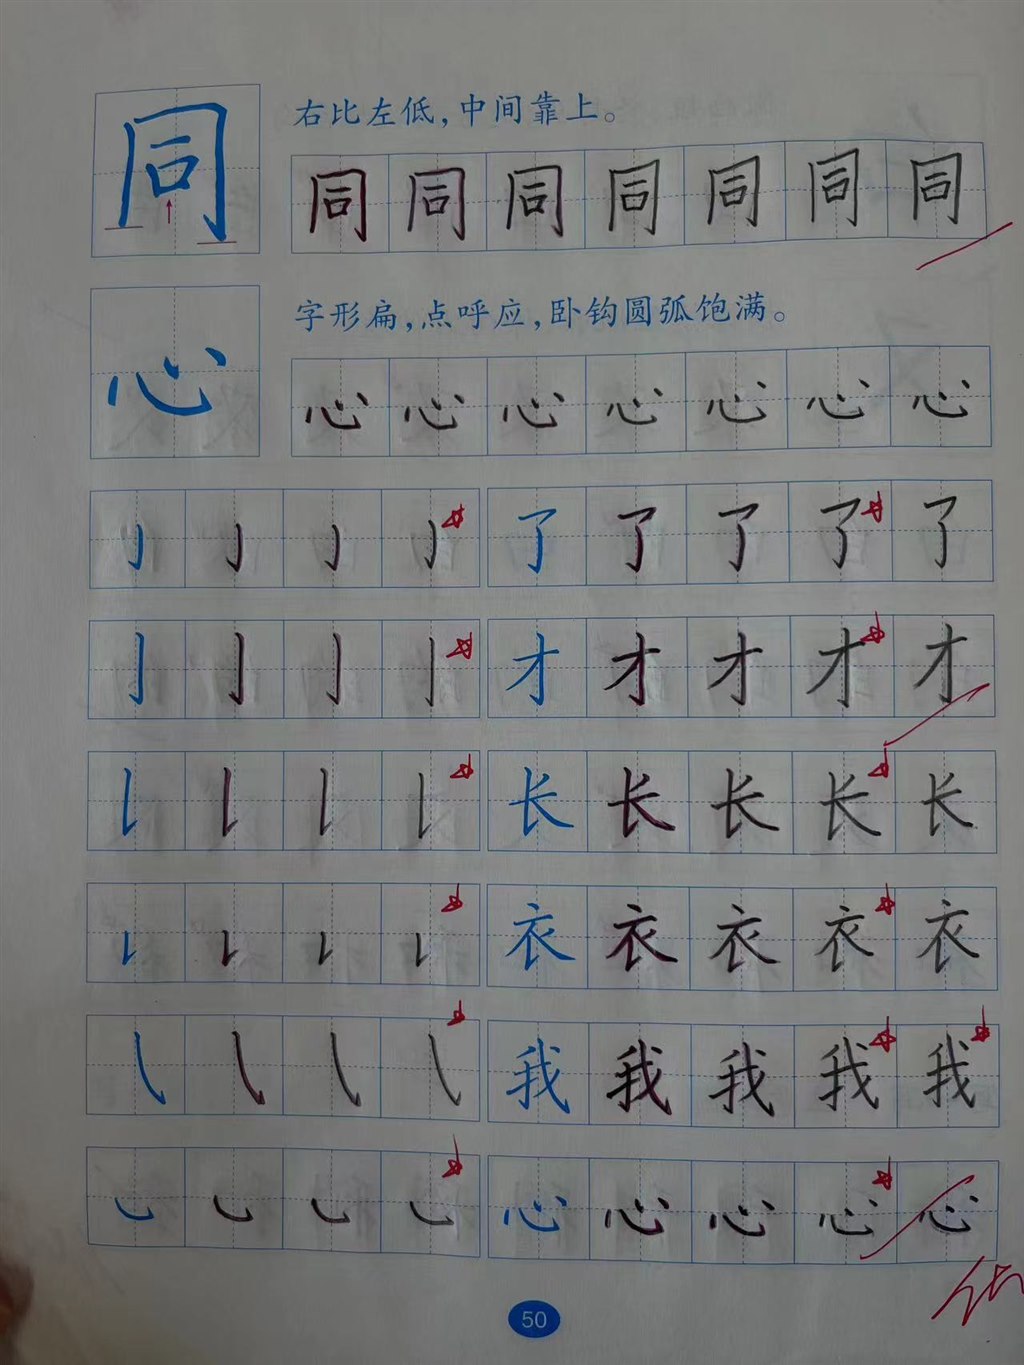 同
右比左低，中间靠上。
同 同 同 同 同 同 同
心
字形扁，点呼应，卧钩圆弧饱满。
心 心 心 心 心 心 心
亅 亅 亅 亅 了 了 了 了 了
亅 亅 亅 亅 才 才 才 才 才
长 长 长 长 长
衣 衣 衣 衣 衣
㇂ ㇂ ㇂ ㇂ 我 我 我 我 我
㇃ ㇃ ㇃ ㇃ 心 心 心 心 心
50